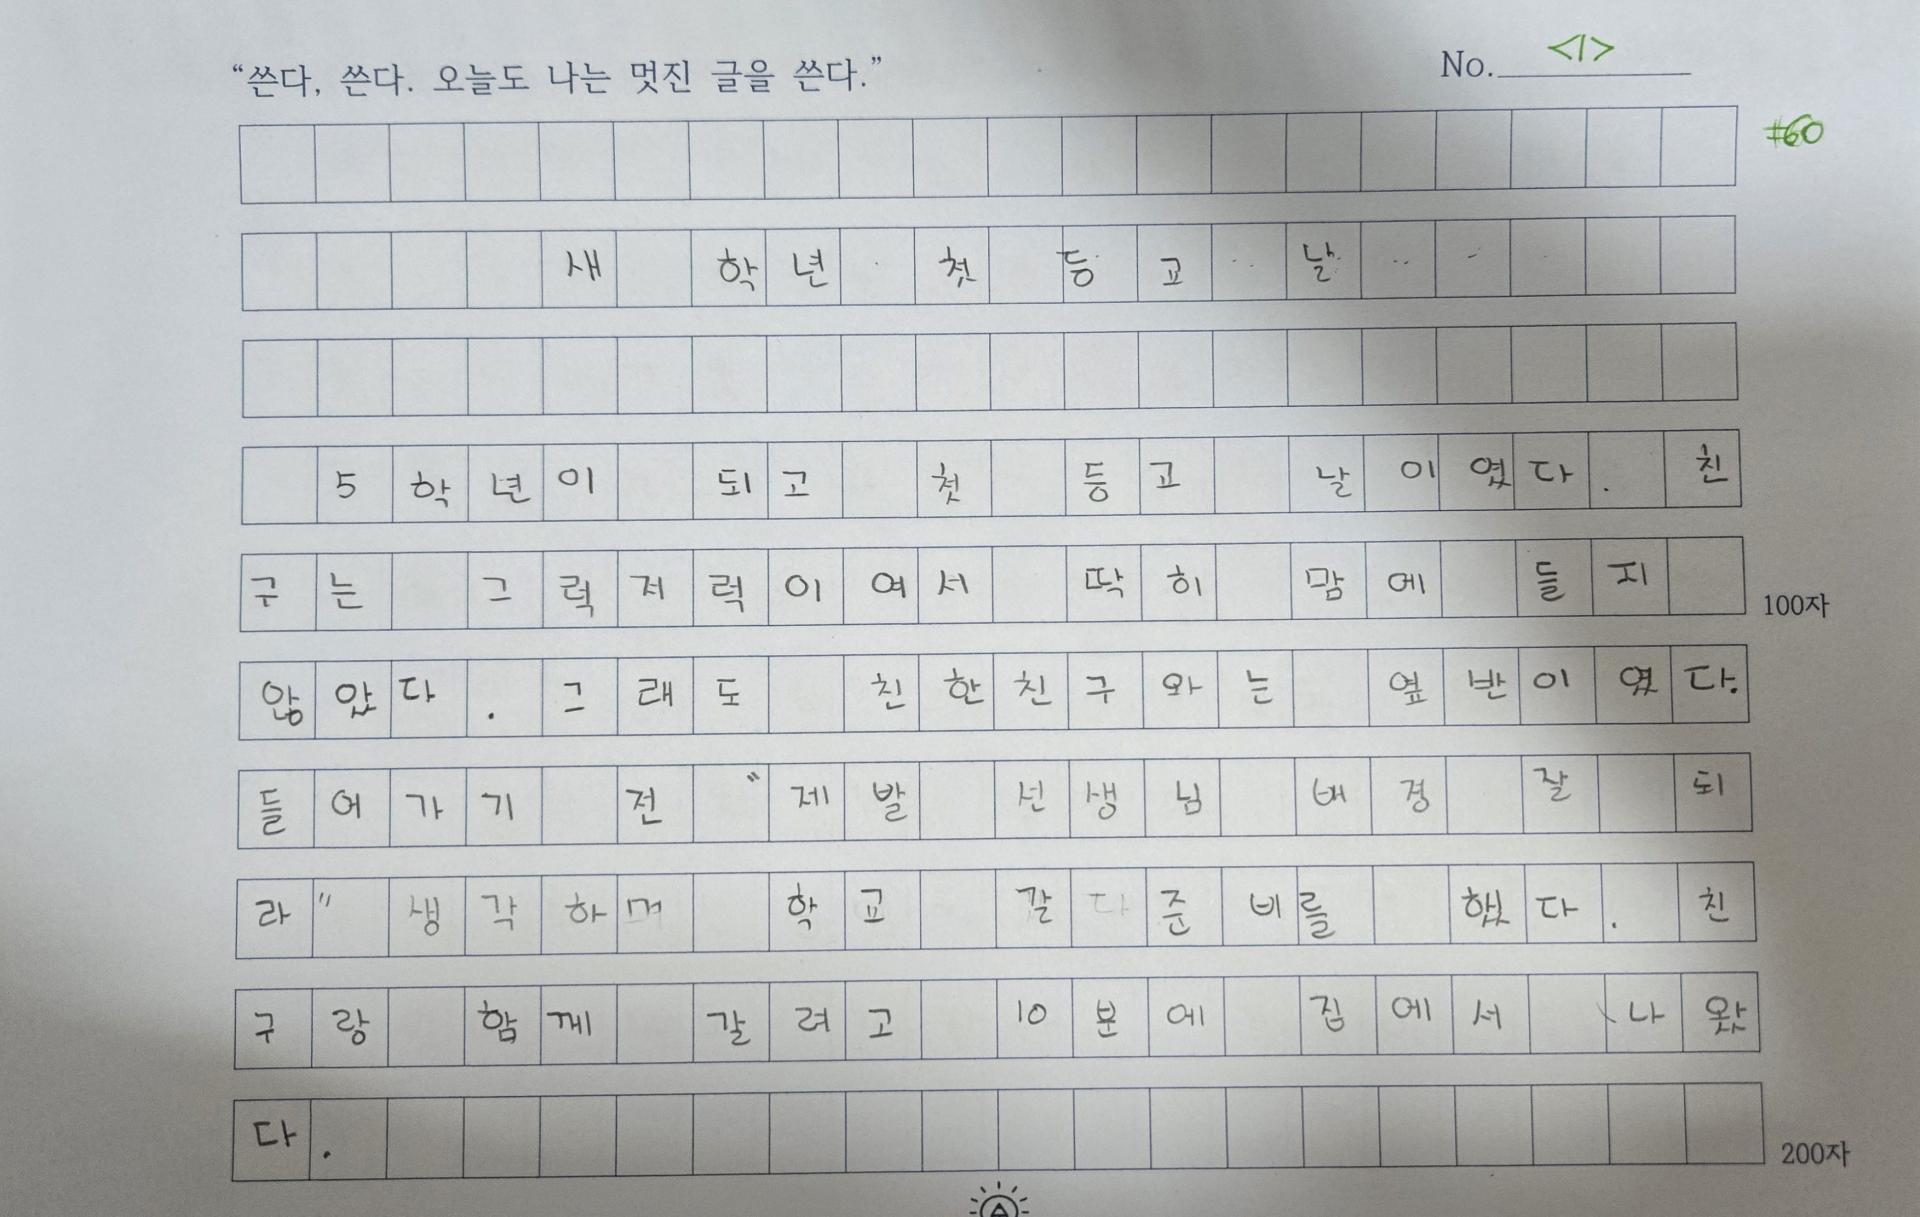 “쓴다, 쓴다. 오늘도 나는 멋진 글을 쓴다.” No. <1>
#60
새 학년 첫 등교 날
5학년이 되고 첫 등교 날이였다. 친
구는 그럭저럭이여서 딱히 맘에 들지
100자
않았다. 그래도 친한친구와는 옆반이였다.
들어가기 전 “제발 선생님 배경 잘 되
라” 생각하며 학교 갈 준비를 했다. 친
구랑 함께 갈려고 10분에 집에서 나왔
다.
200자